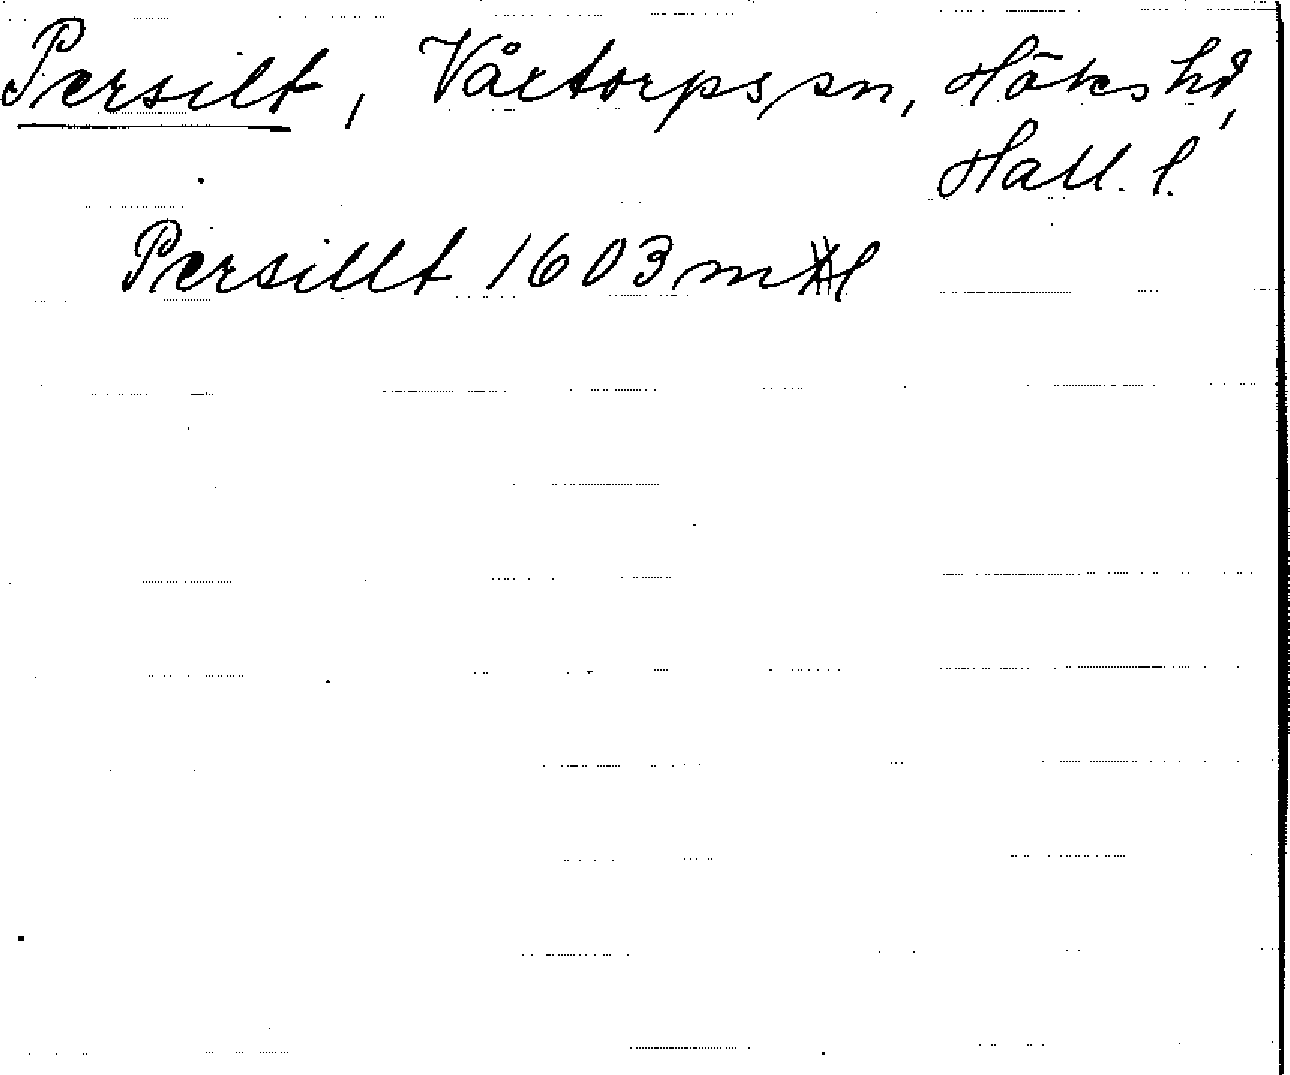 Persilt, Våxtorps sn, Höks hd,
Hall. l.
Persillt 1603 m